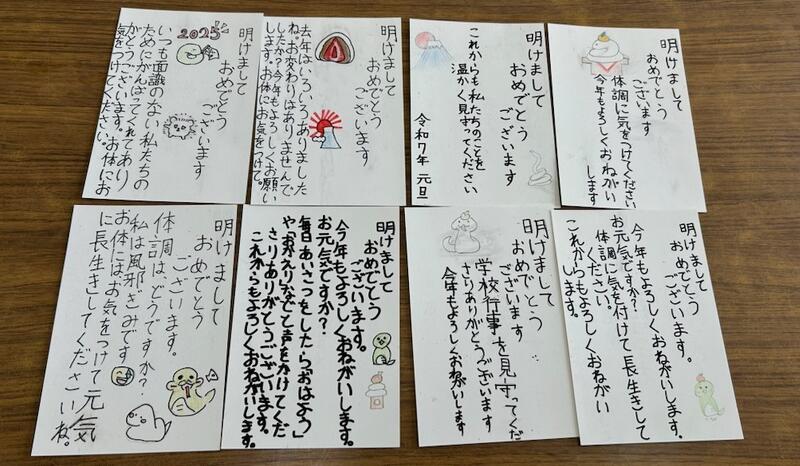 明けまして
おめでとう
ございます
2025
いつも面識のない私たちの
ためにがんばってくれてあり
がとうございます。お体にお
気をつけてください。
明けまして
おめでとう
ございます
去年はいろいろありました
ね。お変わりはありませんで
したか?今年もよろしくお願い
します。お体にお気をつけて。
明けまして
おめでとう
ございます
これからも私たちのことを
温かく見守ってください
令和7年 元旦
明けまして
おめでとう
ございます
体調に気をつけてください
今年もよろしくおねがい
します
明けまして
おめでとう
ございます。
体調はどうですか?
私は風邪ぎみです
お体にはお気をつけて元気
に長生きしてくださいね。
明けまして
おめでとう
ございます。
今年もよろしくおねがいします。
お元気ですか?
毎日あいさつをしたら「おはよう」
や「おかえり」などと声をかけてくだ
さりありがとうございます。
これからもよろしくおねがいします。
明けまして
おめでとう
ございます
学校行事を見守ってくだ
さりありがとうございます
今年もよろしくおねがいします
明けまして
おめでとう
ございます。
今年もよろしくおねがいします。
お元気ですか?
体調に気を付けて長生きして
ください。
これからもよろしくおねがい
します。